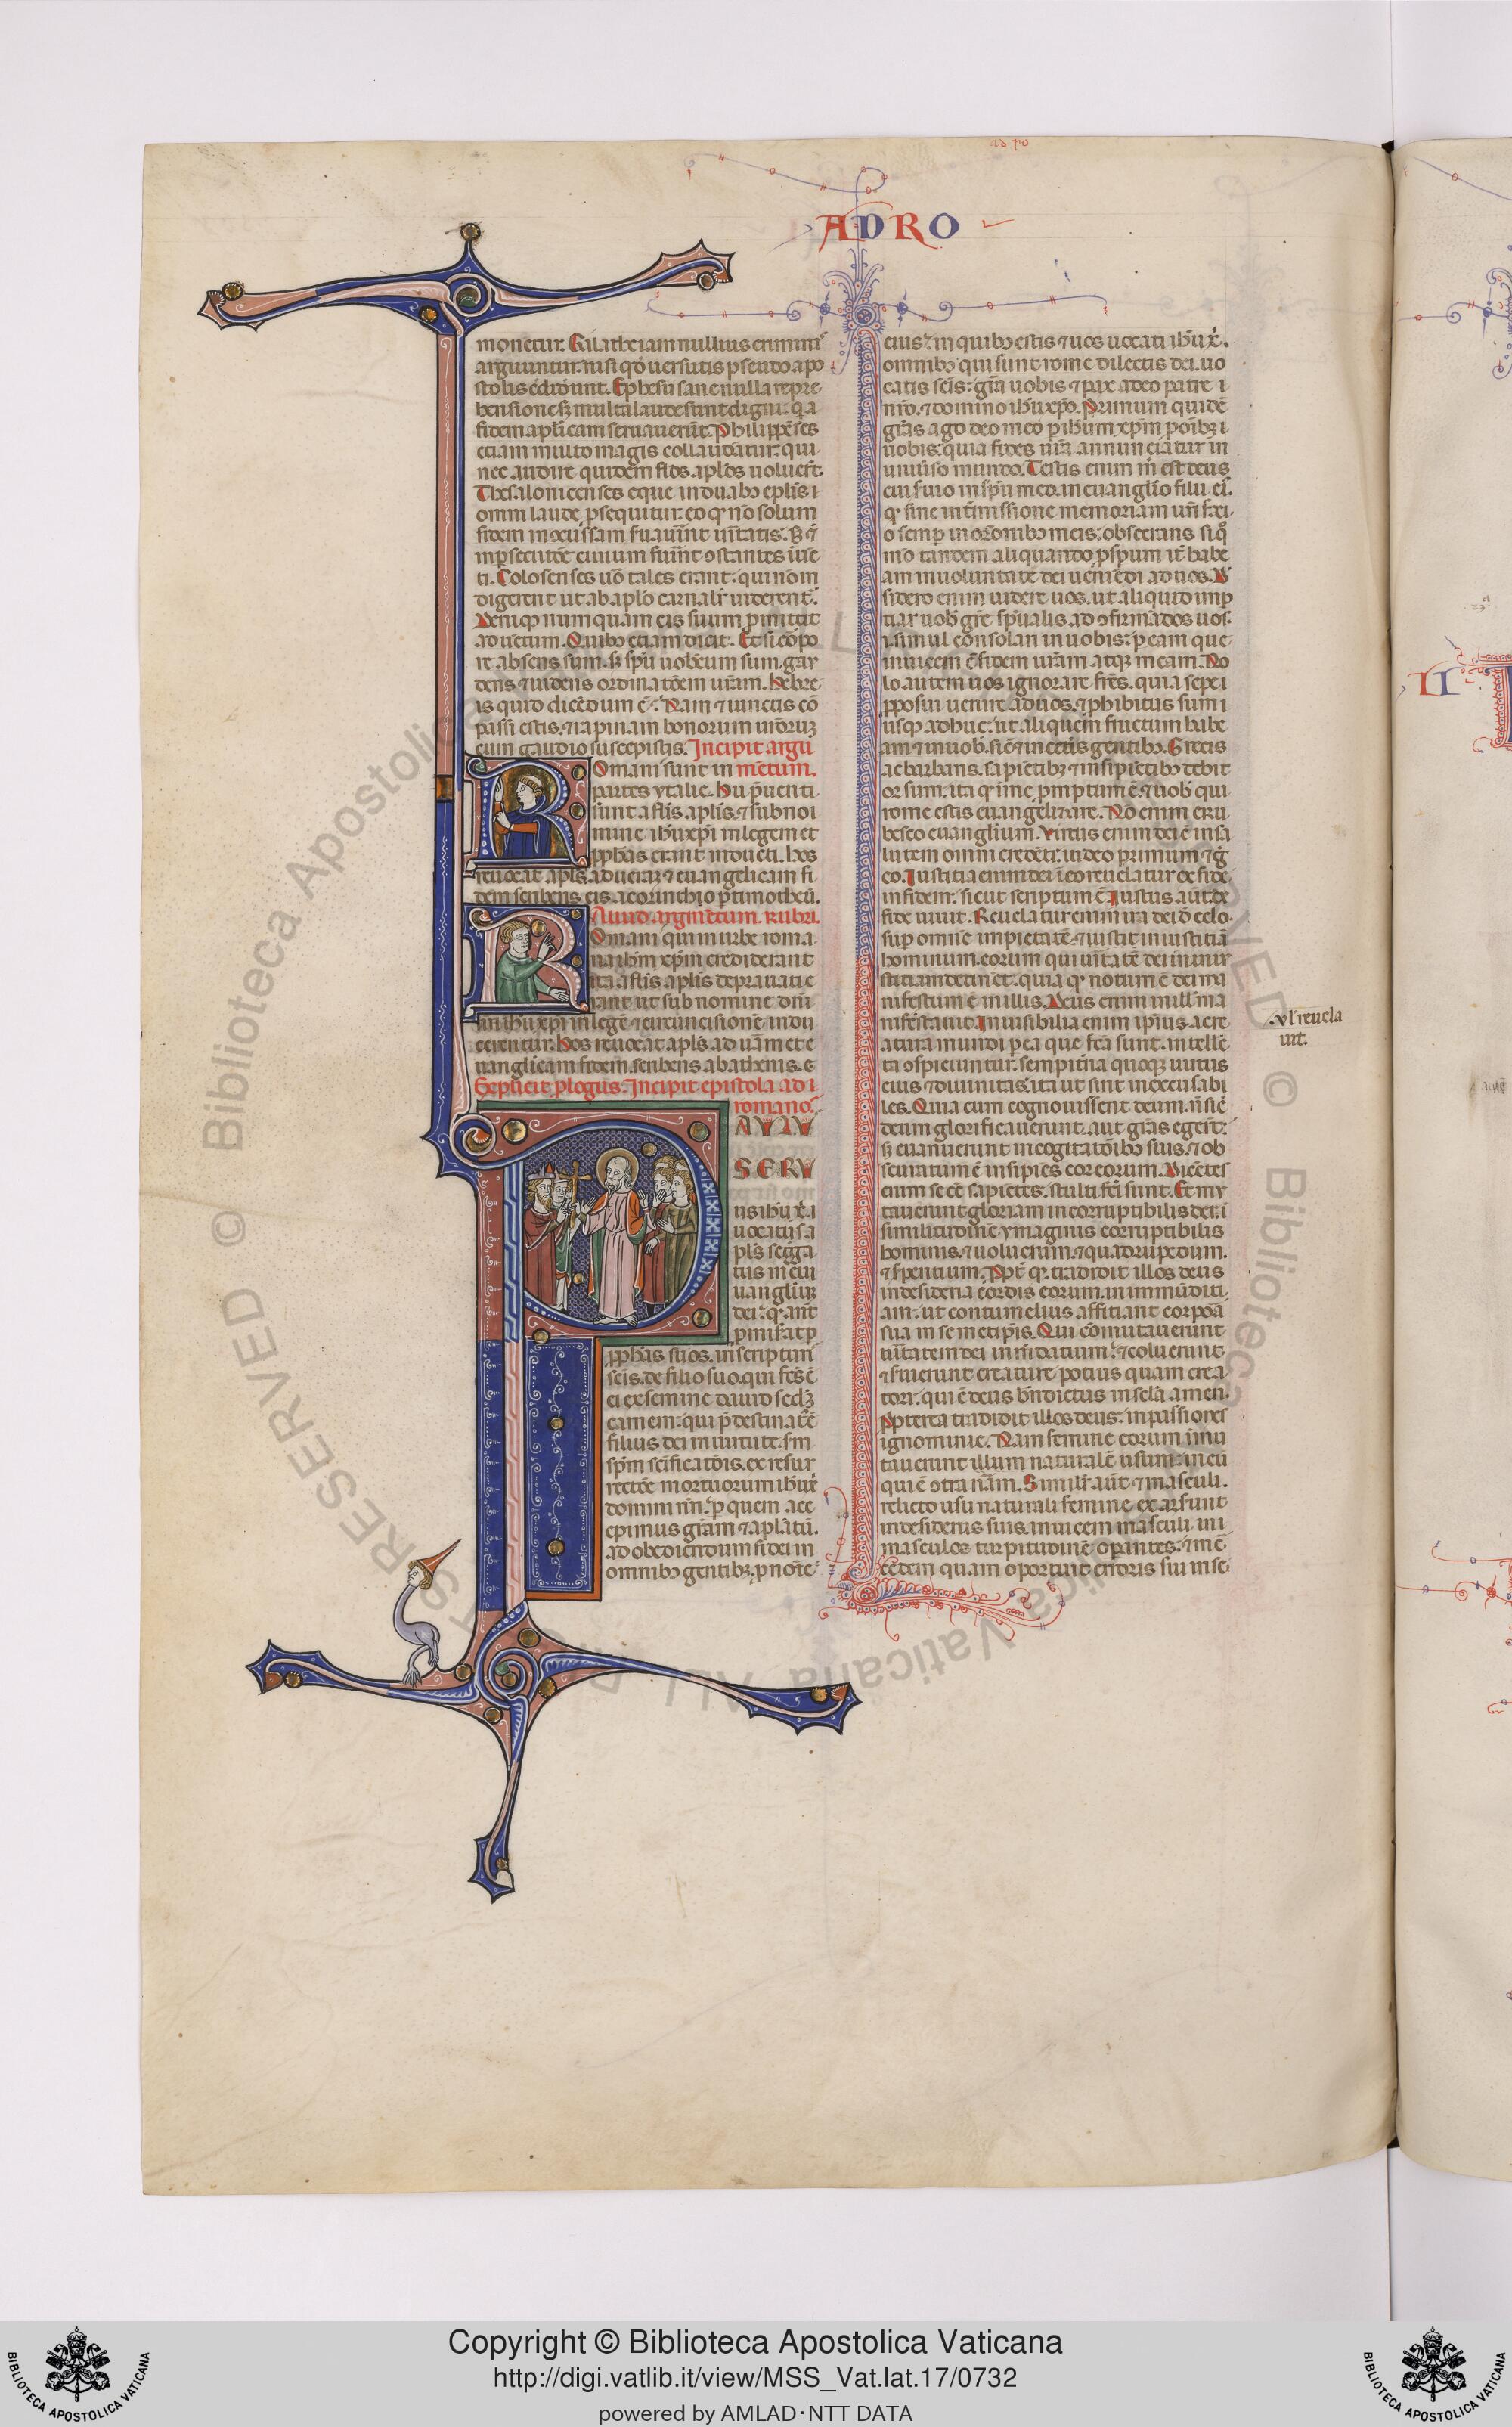 AD RO
monetur. Galathe iam nullius criminis
arguuntur. nisi qd̓ uersutis pseudo apo
stolis c̄didɇunt. Ephesii sane nulla repre
hensione sꝫ multa laude sunt digni: q̓a
fidem apl̓icam seruauerūt. Philippēses
etiam multo magis collaudātur. qui
nec audire quidem fl̓os apl̓os uoluer̄t.
Thesalonicenses eque in duab̓ epl̓is i
omni laude psequitur. eo ꝙ nō solum
fidem incussam
ti. Colosenses uō tales erant. qui nom
digerent ut ab apl̓o carnalr̄ uiderent̄.
Deniqꝫ numquam eis suum p̓mittit
aduentum. Quib̓ etiam dicit. Et si cōpo
re absens sum. sꝫ spū uobcum sum. gau
dens ⁊ uidens ordinatōem ur̄am. Hebre
is quid dicēdum ē. Nam ⁊ uinctis cō
passi estis. ⁊ rapinam bonorum ur̄oruꝫ
cum gaudio suscepistis. Incipit argu
Omani sunt in mētum.
partes ytalie. Hii p̓uenti
sunt a fl̓is apl̓is. ⁊ sub noi
mine ih̄u xp̄i in legem et
pp̄has erant inducti. hos
reuocat apl̓s ad uerā ⁊ euangelicam fi
dem scribens eis a corintho p timotheū.
Aliud argmētum. Rubri.
Omani qui in urbe roma
na ih̄m xp̄m crediderant
ita a fl̓is apl̓is deprauati e
rant ut sub nomine dn̄i
nr̄i ih̄u xp̄i in legē ⁊ circūncisionē indu
cerentur. Hos reuocat apl̓s ad uām et e
uanglicam fidem. scribens ab athenis. e
Explicit plogus. Incipit epistola ad
romanos.
PAULUS
SERU
us ih̄u xp̄i
uocatus a
pl̓s segga
tus in eu
uangliuꝫ
dei. qd̓ ant
p̓misɇat p
pp̄has suos. in scripturis
scis. de filio suo. qui fcs̄ ē
ei ex semine dauid scdꝫ
carnem: qui p̓destinat̄ ē
filius dei in uirtute. sm
spm̄ scificatōis. ex resur
rectōe mortuorum ih̄u xp̄i
domini nr̄i. p quem acce
pimus gr̄am ⁊ apl̓atū.
ad obediendum fidei in
omnib̓ gentibꝫ. p noīe
eius. in quib̓ estis ⁊ uos uocati ih̄u xp̄i.
omnib̓ qui sunt rome dilectis dei. uo
catis scis. gr̄a uobis ⁊ pax a deo patre
nr̄o. ⁊ domino ih̄u xp̄o. Primum quidē
gr̄as ago deo meo p ih̄um xp̄m p oībꝫ
uobis: quia fides ur̄a annunciatur in
uniūso mundo. Testis enim m̄ est deus
cui s̓uio in spū meo. in euangl̓io filii ei̓.
ꝙ sine int̄missione memoriam ur̄i faci
o semp in orōnib̓ meis: obsecrans si q̓
mō tandem aliquando p̓spum it̄ habe
am in uoluntate dei ueniēdi ad uos. De
sidero enim uidere uos. ut aliquid imp
tiar uob̓ gr̄e spūalis. ad ɔfirmādos uos.
i. simul consolari in uobis: p eam que
inuicem ē fidem ur̄am atqꝫ meam. No
lo autem uos ignorare fr̄es. quia sepe
pposui uenire ad uos. ⁊ phibitus sum
usqꝫ adhuc. ut aliquem fructum habe
am ⁊ in uob̓. sic̄ ⁊ in cet̄is gentib̓. Grecis
ac barbaris. sapiētibꝫ ⁊ insipiētib̓ debit
or sum. ita ꝙ i me p̓mptum ē. ⁊ uob̓ qui
rome estis euangelizare. Nō enim eru
besco euangl̓ium. Virtus enim dei ē in sa
lutem omni credēti. iudeo primum ⁊ g̓
co. Iustitia enim dei ī eo reuelatur ex fide
in fidem: sicut scriptum ē. Iustus aūt ex
fide uiuit. Reuelatur enim ira dei d̄ celo
sup omnē impietatē. ⁊ iustit iniustitiā
hominum. eorum qui uītatē dei in iniu
stitiam detinēt. quia qd̓ notum ē dei ma
nifestum ē in illis. Deus enim illis ma
nifestauit. Inuisibilia enim ipsius a cre
atura mundi p ea que fcā sunt. intelle
cta ɔspiciuntur. sempit̄na quoqꝫ uirtus
eius ⁊ diuinitas. ita ut sint inexcusabi
les. Quia cum cognouissent deum. n̄ sic̄
deum glorificauerunt. aut gr̄as egerūt:
sꝫ euanuerunt in cogitatōib̓ suis. ⁊ ob
scuratum ē insipiēs cor eorum. Dicētes
enim se cē sapiētes. stulti fc̄i sunt. Et mu
tauerunt gloriam incorruptibilis dei: i
similitudinē ymaginis corruptibilis
hominis. ⁊ uolucrum. ⁊ quadrupedum.
⁊ s̓pentium. Ppt̄ qd̓ tradidit illos deus
in desideria cordis eorum. in immūditi
am: ut contumeliis afficiant corpora
sua in semetip̄is. Qui cōmutauerunt
uītatem dei in mēdatium: ⁊ coluerunt
⁊ s̓uierunt creature potius quam crea
tori. qui ē deus bn̄dictus in scl̄a amen.
Ppterea tradidit illos deus: in passiones
ignominie. Nam femine eorum īmu
tauerunt illum naturalē usum: in eū
qui ē ɔtra nām. Similr̄ aūt ⁊ masculi.
relicto usu naturali femine exarsunt
in desideriis suis. inuicem masculi in
masculos turpitudinē opantes: ⁊ m̄
cedem quam oportuit erroris sui in se
.Vl̓ reuela
uit.
II
Copyright © Biblioteca Apostolica Vaticana
http://digi.vatlib.it/view/MSS_Vat.lat.17/0732
powered by AMLAD·NTT DATA
BIBLIOTECA APOSTOLICA VATICANA
BIBLIOTECA APOSTOLICA VATICANA
© Biblioteca Apostolica Vaticana ALL RIGHTS RESERVED